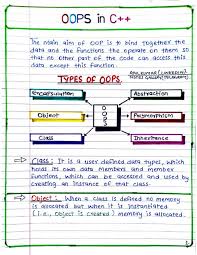 OOPS in C++
The main aim of OOP is to bind together the
data and the functions the operate on them so
that no other part of the code can access this
data except this function.
TYPES OF OOPS.
Encapsulation
Abstraction
Object
Polymorphism
Class
Inheritance
Class : It is a user defined data types, which
holds its own data Members and member
functions, which can be accessed and used by
creating an instance of that class.
Object : When a class is defined no memory
is allocated but when it is instantiated
(i.e., Object is created) memory is allocated.